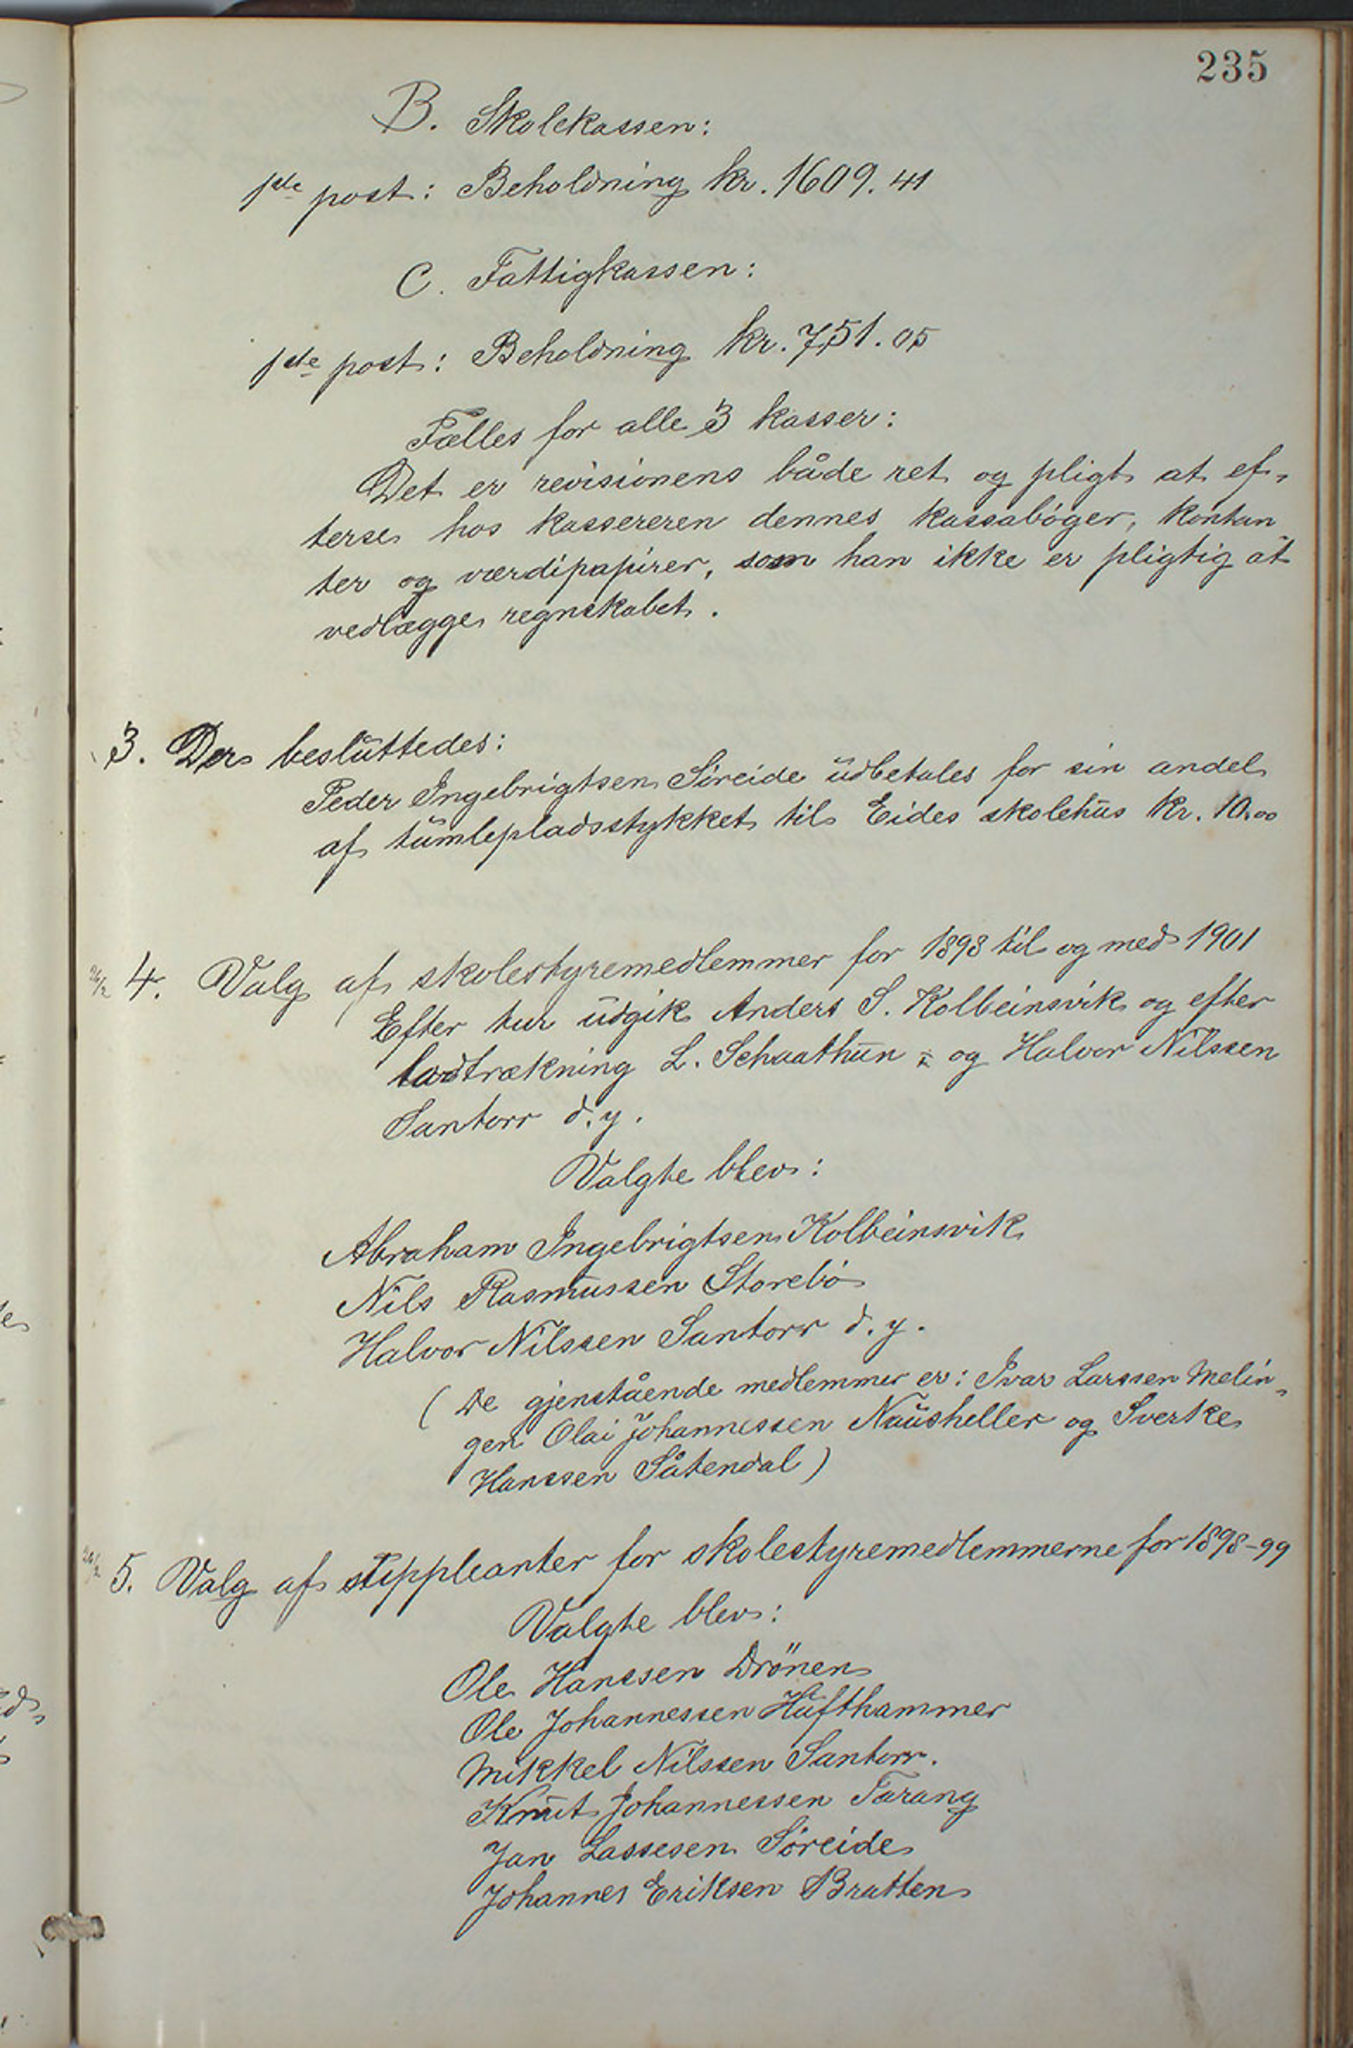 235
B. Skolekassen:
1ste post: Beholdning kr. 1609.41
C. Fattigkassen:
1ste post: Beholdning kr. 751.05
Fælles for alle 3 kasser:
Det er revisionens både ret og pligt at ef-
terse hos kassereren dennes kassabøger, kontan
ter og værdipapirer, som han ikke er pligtig at
vedlægge regnskabet.
3. Der besluttedes:
Peder Ingebrigtsen Søreide udbetales for sin andel
af tumlepladsstykket til Eides skolehus kr. 10.00
4. Valg af skolestyremedlemmer for 1898 til og med 1901
Efter tur udgik Anders S. Kolbeinsvik og efter
lodtrækning L. Schaathun og Halvor Nilssen
Santorr d.y.
Valgte blev:
Abraham Ingebrigtsen Kolbeinsvik
Nils Rasmussen Storebø
Halvor Nilssen Santorr d.y.
(De gjenstående medlemmer er: Ivar Larssen Melin-
gen Olai Johannessen Nausheller og Sverke
Hanssen Såtendal)
5. Valg af suppleanter for skolestyremedlemmerne for 1898-99
Valgte blev:
Ole Hanssen Drönen
Ole Johannessen Hufthammer
Mikkel Nilssen Santorr.
Knut Johannessen Tarang
Jan Lassesen Søreide
Johannes Eriksen Bratten